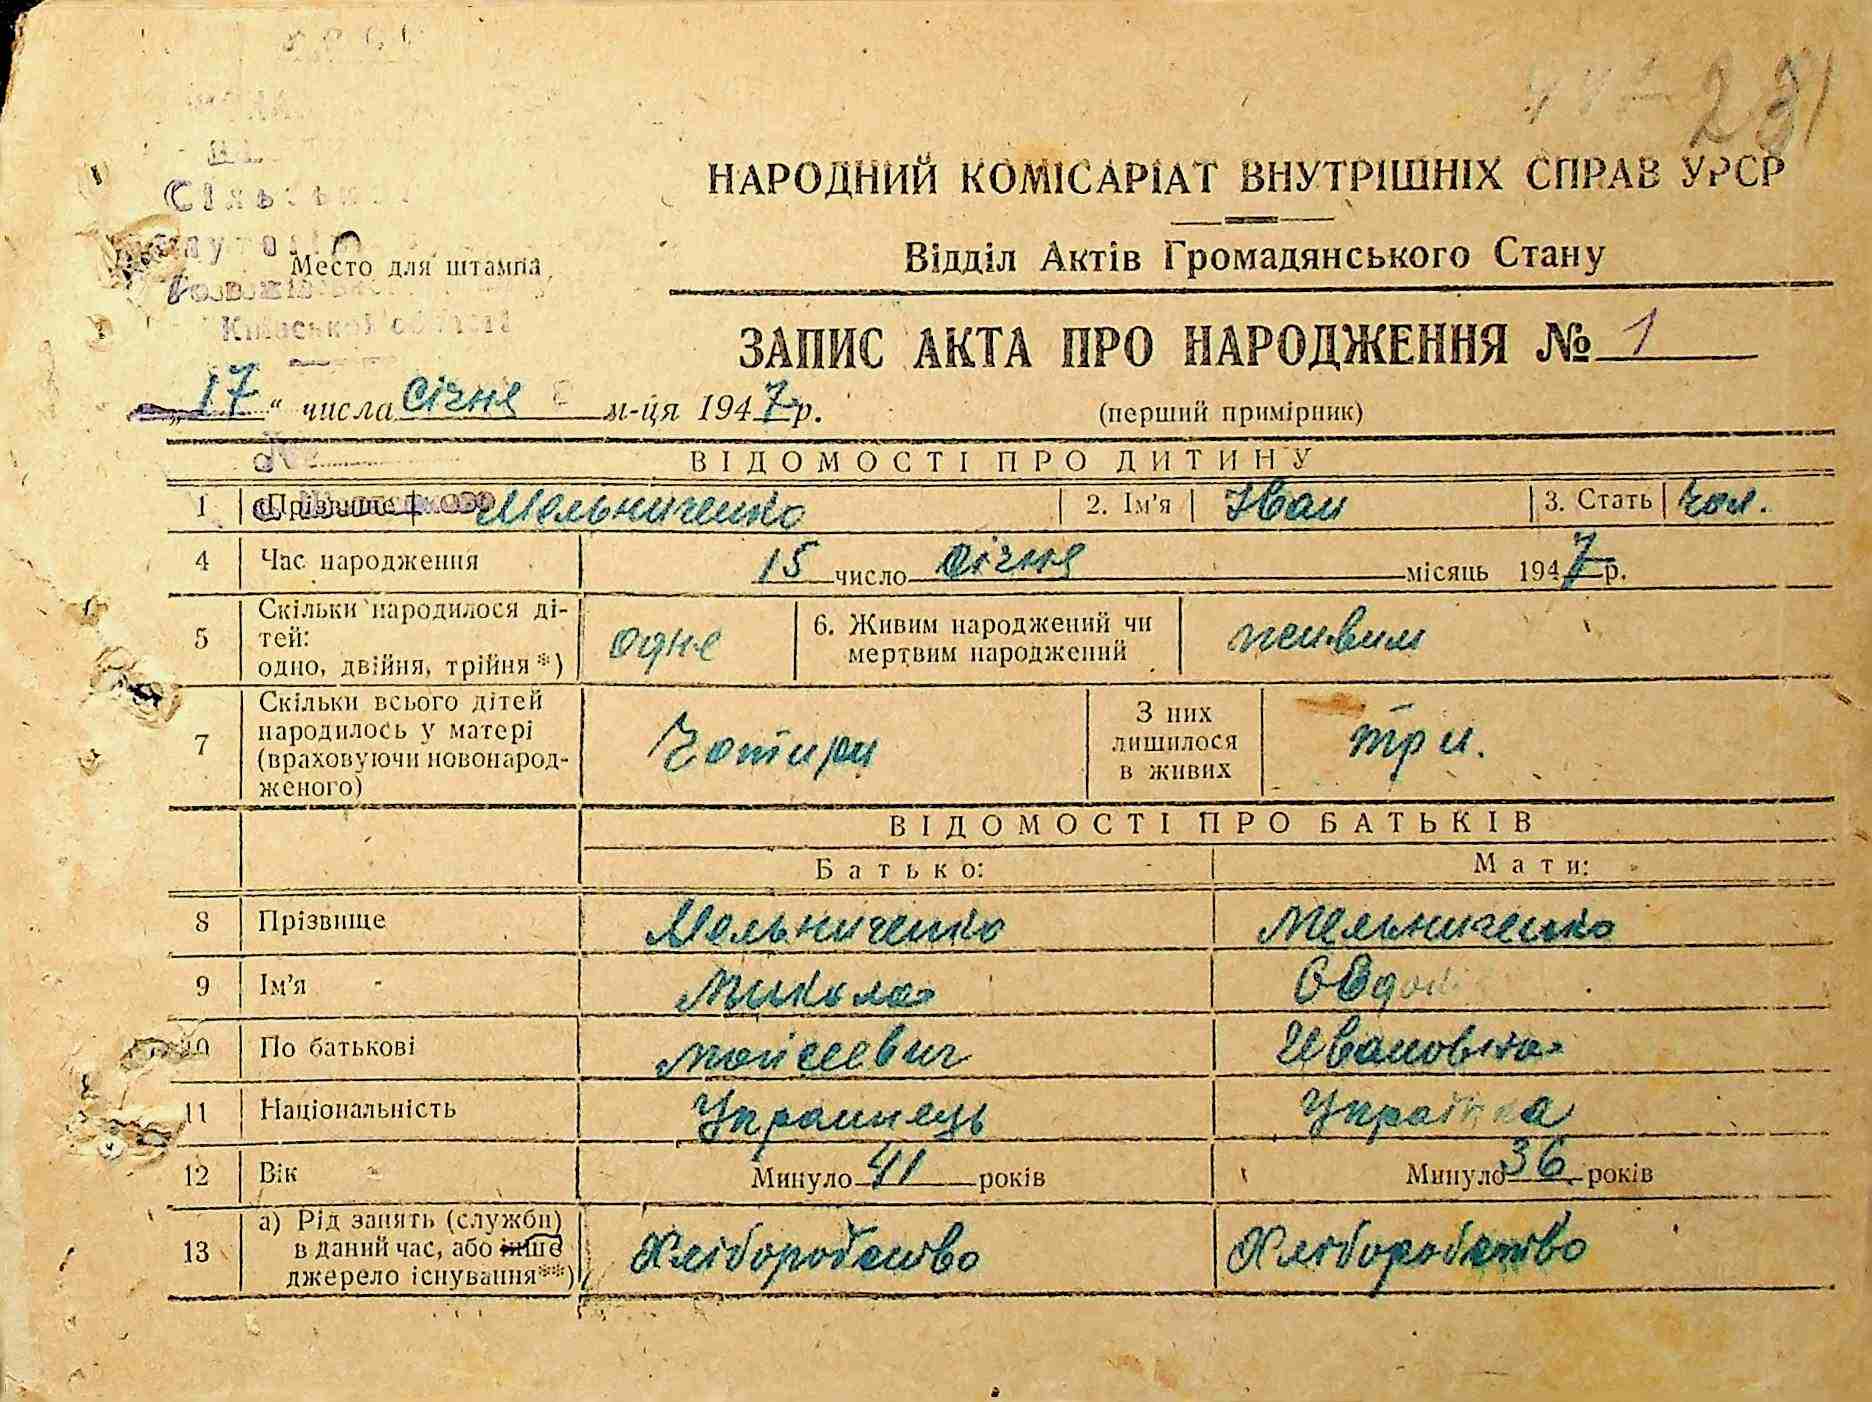 231
НАРОДНИЙ КОМІСАРІАТ ВНУТРІШНІХ СПРАВ УРСР
Відділ Актів Громадянського Стану
Место для штампа
Київської області
ЗАПИС АКТА ПРО НАРОДЖЕННЯ № 1
„17“ числа січня м-ця 1947 р.
(перший примірник)
ВІДОМОСТІ ПРО ДИТИНУ
1 Прізвище Мельниченко 2. Ім'я Іван 3. Стать чол.
4 Час народження 15 число січня місяць 1947 р.
5 Скільки народилося ді-
тей:
одно, двійня, трійня*) одне 6. Живим народжений чи
мертвим народжений живим
7 Скільки всього дітей
народилось у матері
(враховуючи новонарод-
женого) Чотири З них
лишилося
в живих три.
ВІДОМОСТІ ПРО БАТЬКІВ
Батько: Мати:
8 Прізвище Мельниченко Мельниченко
9 Ім'я Микола
10 По батькові Мойсеевич Ивановна
11 Національність Украинець Українка
12 Вік Минуло 41 років Минуло 36 років
13 а) Рід занять (служби)
в даний час, або інше
джерело існування**) Хліборобство Хліборобство